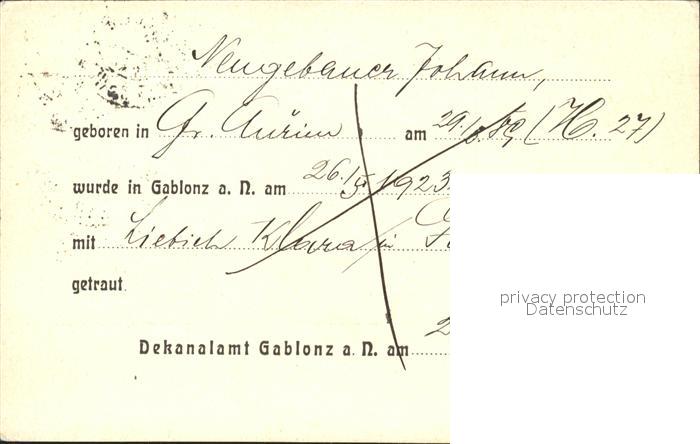 Neugebauer Johann,
geboren in Gr. Aurim am 29./6. (H. 27)
wurde in Gablonz a. N. am 26./5 1923.
mit Liebich Klara in
getraut.
privacy protection
Datenschutz
Dekanalamt Gablonz a. N. am 2